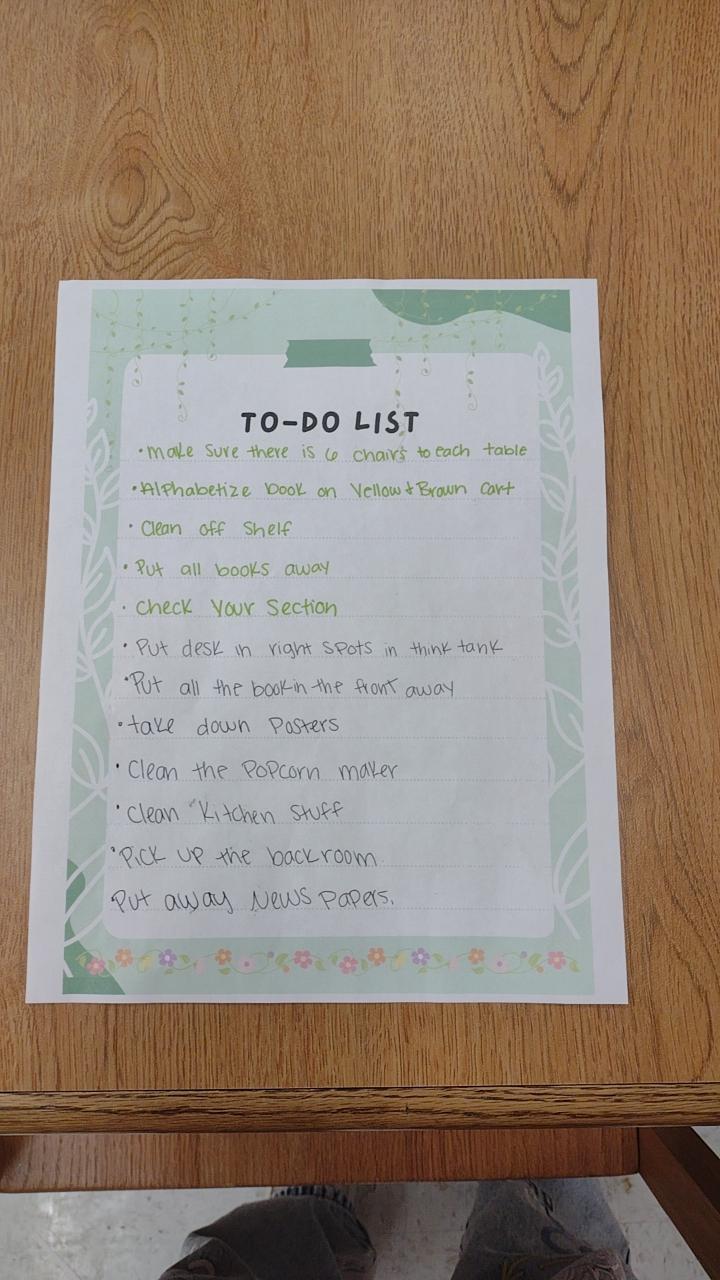 TO-DO LIST
• make Sure there is 6 chairs to each table
• Alphabetize book on Yellow + Brown Cart
• Clean off Shelf
• Put all books away
• Check Your Section
• Put desk in right spots in think tank
• Put all the book in the front away
• take down Posters
• Clean the Popcorn maker
• Clean Kitchen Stuff
• Pick up the backroom
Put away News Papers.